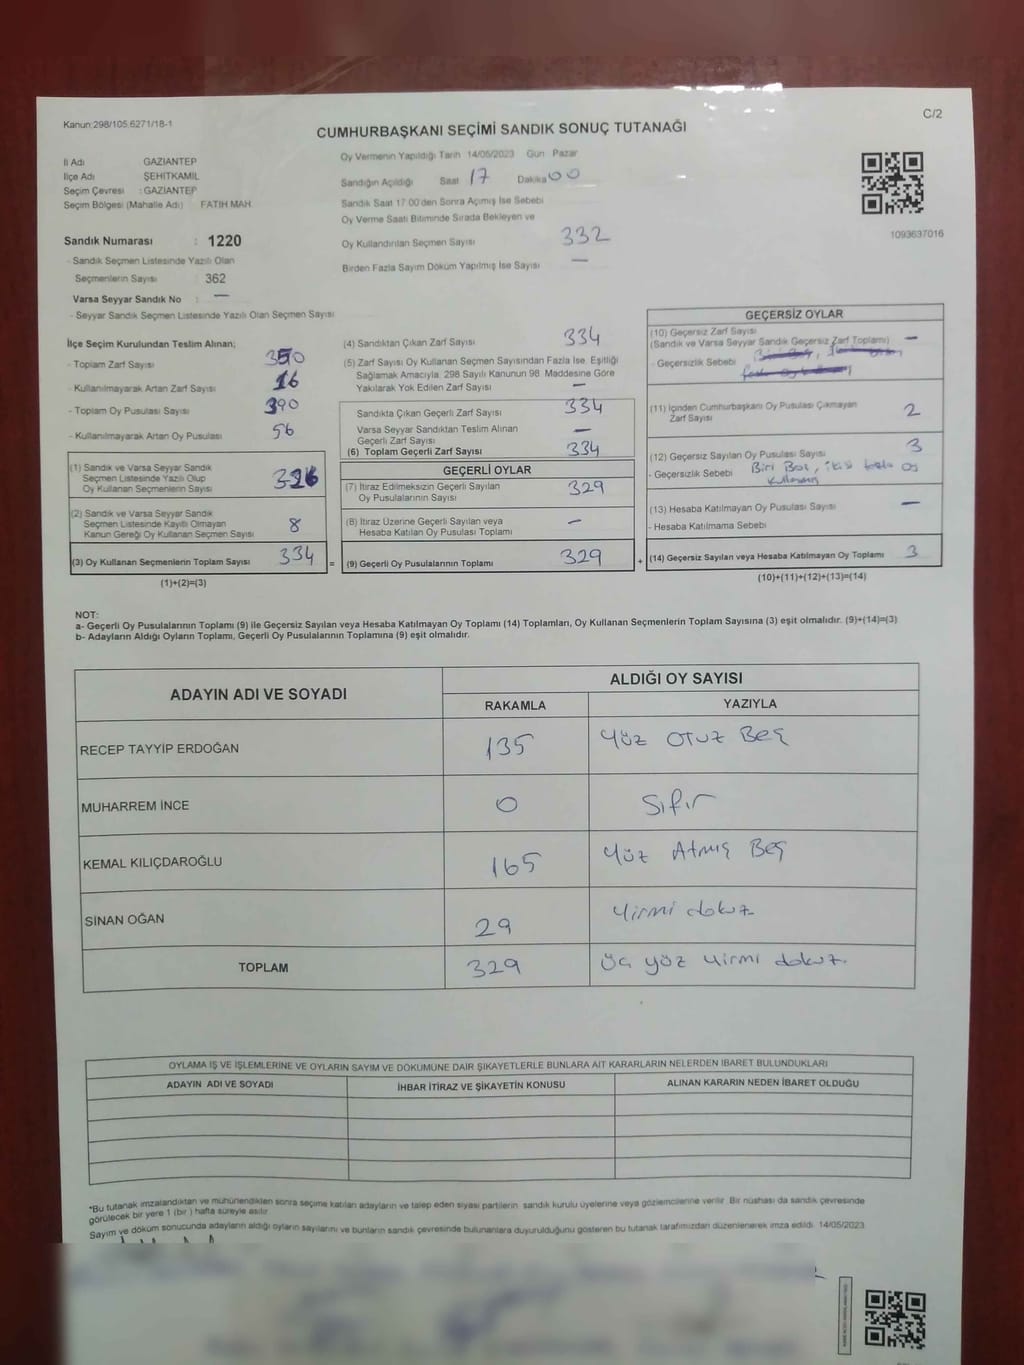 Kanun:298/105.6271/18-1
C/2
CUMHURBAŞKANI SEÇİMİ SANDIK SONUÇ TUTANAĞI
İl Adı GAZİANTEP
İlçe Adı ŞEHİTKAMİL
Seçim Çevresi : GAZİANTEP
Seçim Bölgesi (Mahalle Adı) FATİH MAH.
Sandık Numarası : 1220
- Sandık Seçmen Listesinde Yazılı Olan
Seçmenlerin Sayısı : 362
Varsa Seyyar Sandık No : —
- Seyyar Sandık Seçmen Listesinde Yazılı Olan Seçmen Sayısı
Oy Vermenin Yapıldığı Tarih 14/05/2023 Gün Pazar
Sandığın Açıldığı Saat 17 Dakika 00
Sandık Saat 17.00'den Sonra Açımış İse Sebebi
Oy Verme Saati Bitiminde Sırada Bekleyen ve
Oy Kullandırılan Seçmen Sayısı 332
Birden Fazla Sayım Döküm Yapılmış İse Sayısı —
1093637016
İlçe Seçim Kurulundan Teslim Alınan;
- Toplam Zarf Sayısı 350
- Kullanılmayarak Artan Zarf Sayısı 16
- Toplam Oy Pusulası Sayısı 390
- Kullanılmayarak Artan Oy Pusulası 56
(1) Sandık ve Varsa Seyyar Sandık
Seçmen Listesinde Yazılı Olup
Oy Kullanan Seçmenlerin Sayısı 326
(2) Sandık ve Varsa Seyyar Sandık
Seçmen Listesinde Kayıtlı Olmayan
Kanun Gereği Oy Kullanan Seçmen Sayısı 8
(3) Oy Kullanan Seçmenlerin Toplam Sayısı 334
(1)+(2)=(3)
(4) Sandıktan Çıkan Zarf Sayısı 334
(5) Zarf Sayısı Oy Kullanan Seçmen Sayısından Fazla İse, Eşitliği
Sağlamak Amacıyla, 298 Sayılı Kanunun 98. Maddesine Göre
Yakılarak Yok Edilen Zarf Sayısı —
Sandıkta Çıkan Geçerli Zarf Sayısı 334
Varsa Seyyar Sandıktan Teslim Alınan
Geçerli Zarf Sayısı —
(6) Toplam Geçerli Zarf Sayısı 334
GEÇERLİ OYLAR
(7) İtiraz Edilmeksizin Geçerli Sayılan
Oy Pusulalarının Sayısı 329
(8) İtiraz Üzerine Geçerli Sayılan veya
Hesaba Katılan Oy Pusulası Toplamı —
= (9) Geçerli Oy Pusulalarının Toplamı 329
GEÇERSİZ OYLAR
(10) Geçersiz Zarf Sayısı
(Sandık ve Varsa Seyyar Sandık Geçersiz Zarf Toplamı) —
- Geçersizlik Sebebi
(11) İçinden Cumhurbaşkanı Oy Pusulası Çıkmayan
Zarf Sayısı 2
(12) Geçersiz Sayılan Oy Pusulası Sayısı 3
- Geçersizlik Sebebi Biri Boş, ikisi fazla oy
kullanmış
(13) Hesaba Katılmayan Oy Pusulası Sayısı —
- Hesaba Katılmama Sebebi
+ (14) Geçersiz Sayılan veya Hesaba Katılmayan Oy Toplamı 3
(10)+(11)+(12)+(13)=(14)
NOT:
a- Geçerli Oy Pusulalarının Toplamı (9) ile Geçersiz Sayılan veya Hesaba Katılmayan Oy Toplamı (14) Toplamları, Oy Kullanan Seçmenlerin Toplam Sayısına (3) eşit olmalıdır. (9)+(14)=(3)
b- Adayların Aldığı Oyların Toplamı, Geçerli Oy Pusulalarının Toplamına (9) eşit olmalıdır.
ADAYIN ADI VE SOYADI ALDIĞI OY SAYISI
RAKAMLA YAZIYLA
RECEP TAYYİP ERDOĞAN 135 Yüz Otuz Beş
MUHARREM İNCE 0 Sıfır
KEMAL KILIÇDAROĞLU 165 Yüz Atmış Beş
SİNAN OĞAN 29 Yirmi dokuz
TOPLAM 329 Üç yüz yirmi dokuz.
OYLAMA İŞ VE İŞLEMLERİNE VE OYLARIN SAYIM VE DÖKÜMÜNE DAİR ŞİKAYETLERLE BUNLARA AİT KARARLARIN NELERDEN İBARET BULUNDUKLARI
ADAYIN ADI VE SOYADI İHBAR İTİRAZ VE ŞİKAYETİN KONUSU ALINAN KARARIN NEDEN İBARET OLDUĞU
*Bu tutanak imzalandıktan ve mühürlendikten sonra seçime katılan adayların ve talep eden siyasi partilerin, sandık kurulu üyelerine veya gözlemcilerine verilir. Bir nüshası da sandık çevresinde
görülecek bir yere 1 (bir) hafta süreyle asılır.
Sayım ve döküm sonucunda adayların aldığı oyların sayılarını ve bunların sandık çevresinde bulunanlara duyurulduğunu gösteren bu tutanak tarafımızdan düzenlenerek imza edildi. 14/05/2023